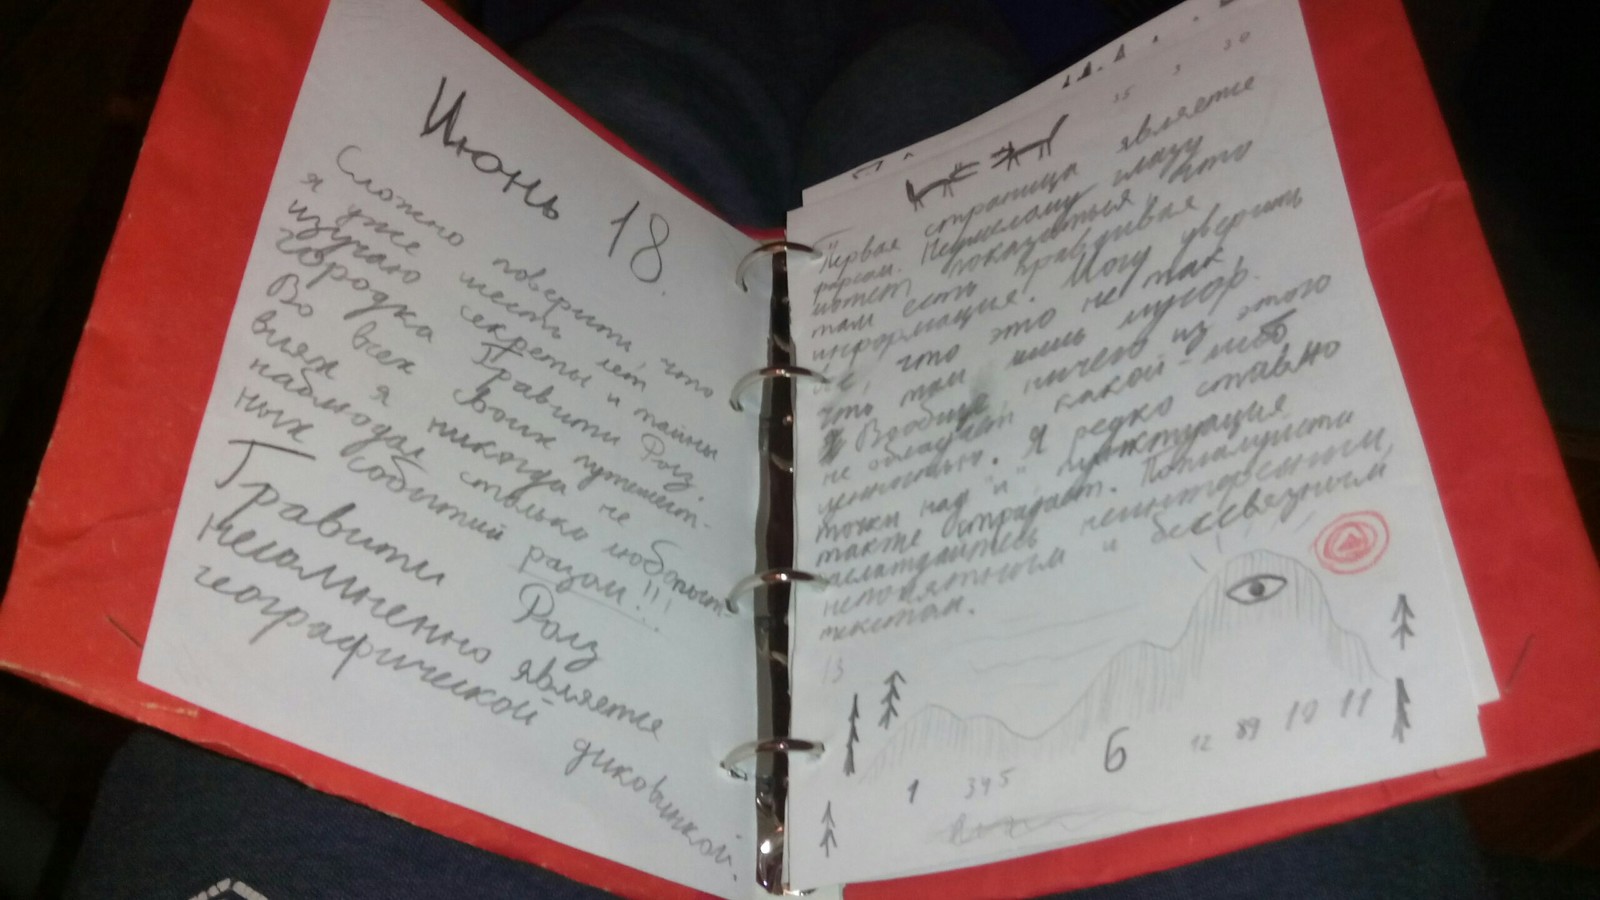 Июнь 18.
Сложно поверить, что
я уже шесть лет
изучаю секреты и тайны
городка Гравити Фолз.
Во всех своих путешест-
виях я никогда не
наблюдал столько любопыт-
ных событий разом!!!
Гравити Фолз
несомненно является
географической диковинкой.
35 3 30
Первая страница является
фарсом. Неумелому глазу
может показаться, что
там есть правдивая
информация. Могу уверить
что это не так,
что там лишь мусор.
Вообще ничего из этого
не обладает какой-либо
ценностью. Я редко ставлю
точки над "и" пунктуация
также страдает. Пожалуйста
наслаждайтесь неинтересным,
непонятным и бессвязным
текстом.
13
1 345 6 12 89 10 11